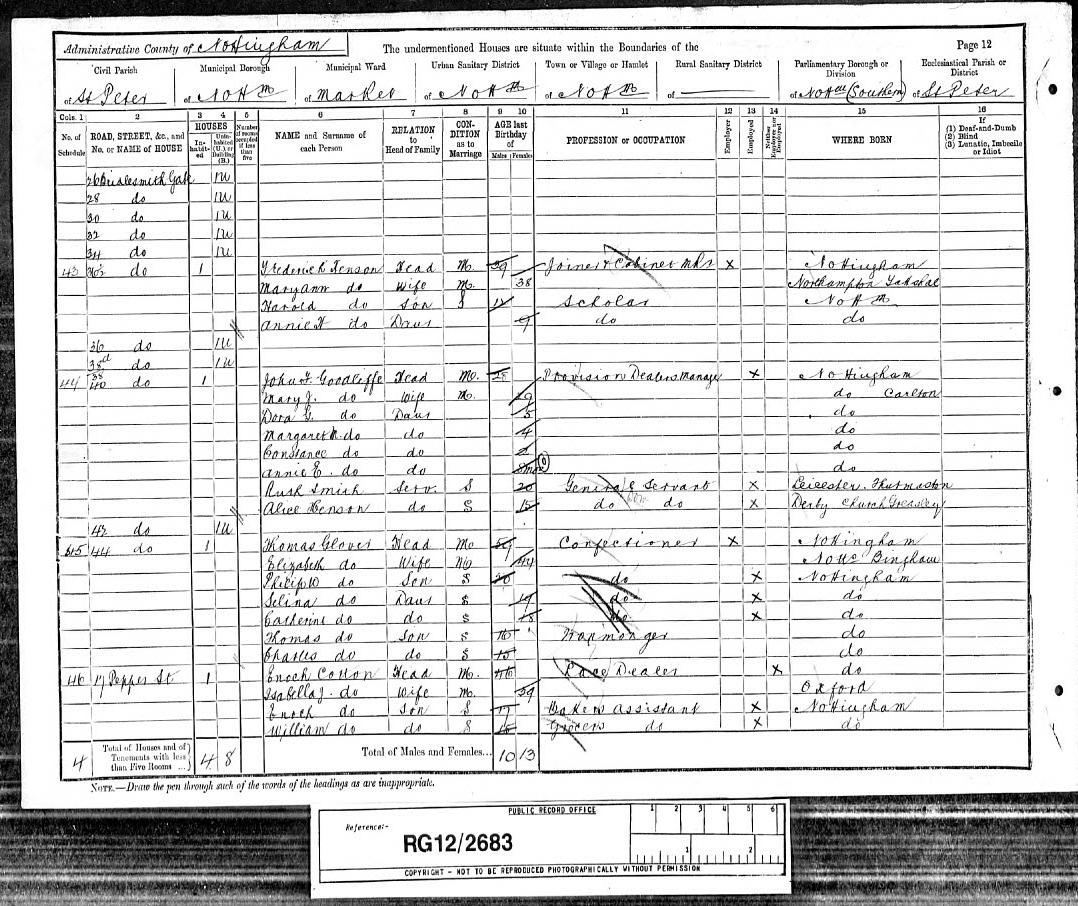 Administrative County of Nottingham The undermentioned Houses are situate within the Boundaries of the Page 12
Civil Parish Municipal Borough Municipal Ward Urban Sanitary District Town or Village or Hamlet Rural Sanitary District Parliamentary Borough or Division Ecclesiastical Parish or District
of St Peter of Nottm of Market of Nottm of Nottm of of Nottm (Southern) of St Peter
Cols. 1 2 3 4 5 6 7 8 9 10 11 12 13 14 15 16
No. of Schedule ROAD, STREET, &c., and No. or NAME of HOUSE HOUSES Inhabited Uninhabited (U.) or Building (B.) Number of rooms occupied if less than five NAME and Surname of each Person RELATION to Head of Family CONDITION as to Marriage AGE last Birthday of Males Females PROFESSION or OCCUPATION Employer Employed Neither Employer nor Employed WHERE BORN If (1) Deaf-and-Dumb (2) Blind (3) Lunatic, Imbecile or Idiot
26 Bridlesmith Gate 1U
28 do 1U
30 do 1U
32 do 1U
34 do 1U
43 do 1 Frederick Henson Head M. 39 Joiner & Cabinet Mkr X Nottingham
Maryann do Wife M. 38 Northampton
Harold do Son S Scholar Nottm
Annie H do Daur 9 do do
36 do 1U
38 do 1U
44 40 do 1 John F. Goodliffe Head M. 28 Provision Dealers Manager X Nottingham
Mary J. do Wife M. 29 do Carlton
Dora G. do Daur 5 do
Margaret M. do do 4 do
Constance do do do
Annie E. do do 8mo do
Ruth Smith Serv. S 20 General Servant X Leicester. Thurmaston
Alice Henson do S 15 do do X Derby Church Greasley
42 do 1U
45 44 do 1 Thomas Glover Head M. 59 Confectioner X Nottingham
Elizabeth do Wife M. 44 Notts Bingham
Philip W do Son S 20 do X Nottingham
Selina do Daur S 19 do X do
Catherine do do S 18 do X do
Thomas do Son S 16 Ironmonger do
Charles do do S 15 do
46 17 Pepper St 1 Enoch Cotton Head M. 46 Lace Dealer X do
Isabella J. do Wife M. 39 Oxford
Enoch do Son S 17 Bakers Assistant X Nottingham
William do do S 15 Grocers do X do
4 Total of Houses and of Tenements with less than Five Rooms ... 4 8 Total of Males and Females... 10 13
NOTE.—Draw the pen through such of the words of the headings as are inappropriate.
PUBLIC RECORD OFFICE
Reference:-
RG12/2683
1 2 3 4 5 6
1 2
COPYRIGHT - NOT TO BE REPRODUCED PHOTOGRAPHICALLY WITHOUT PERMISSION